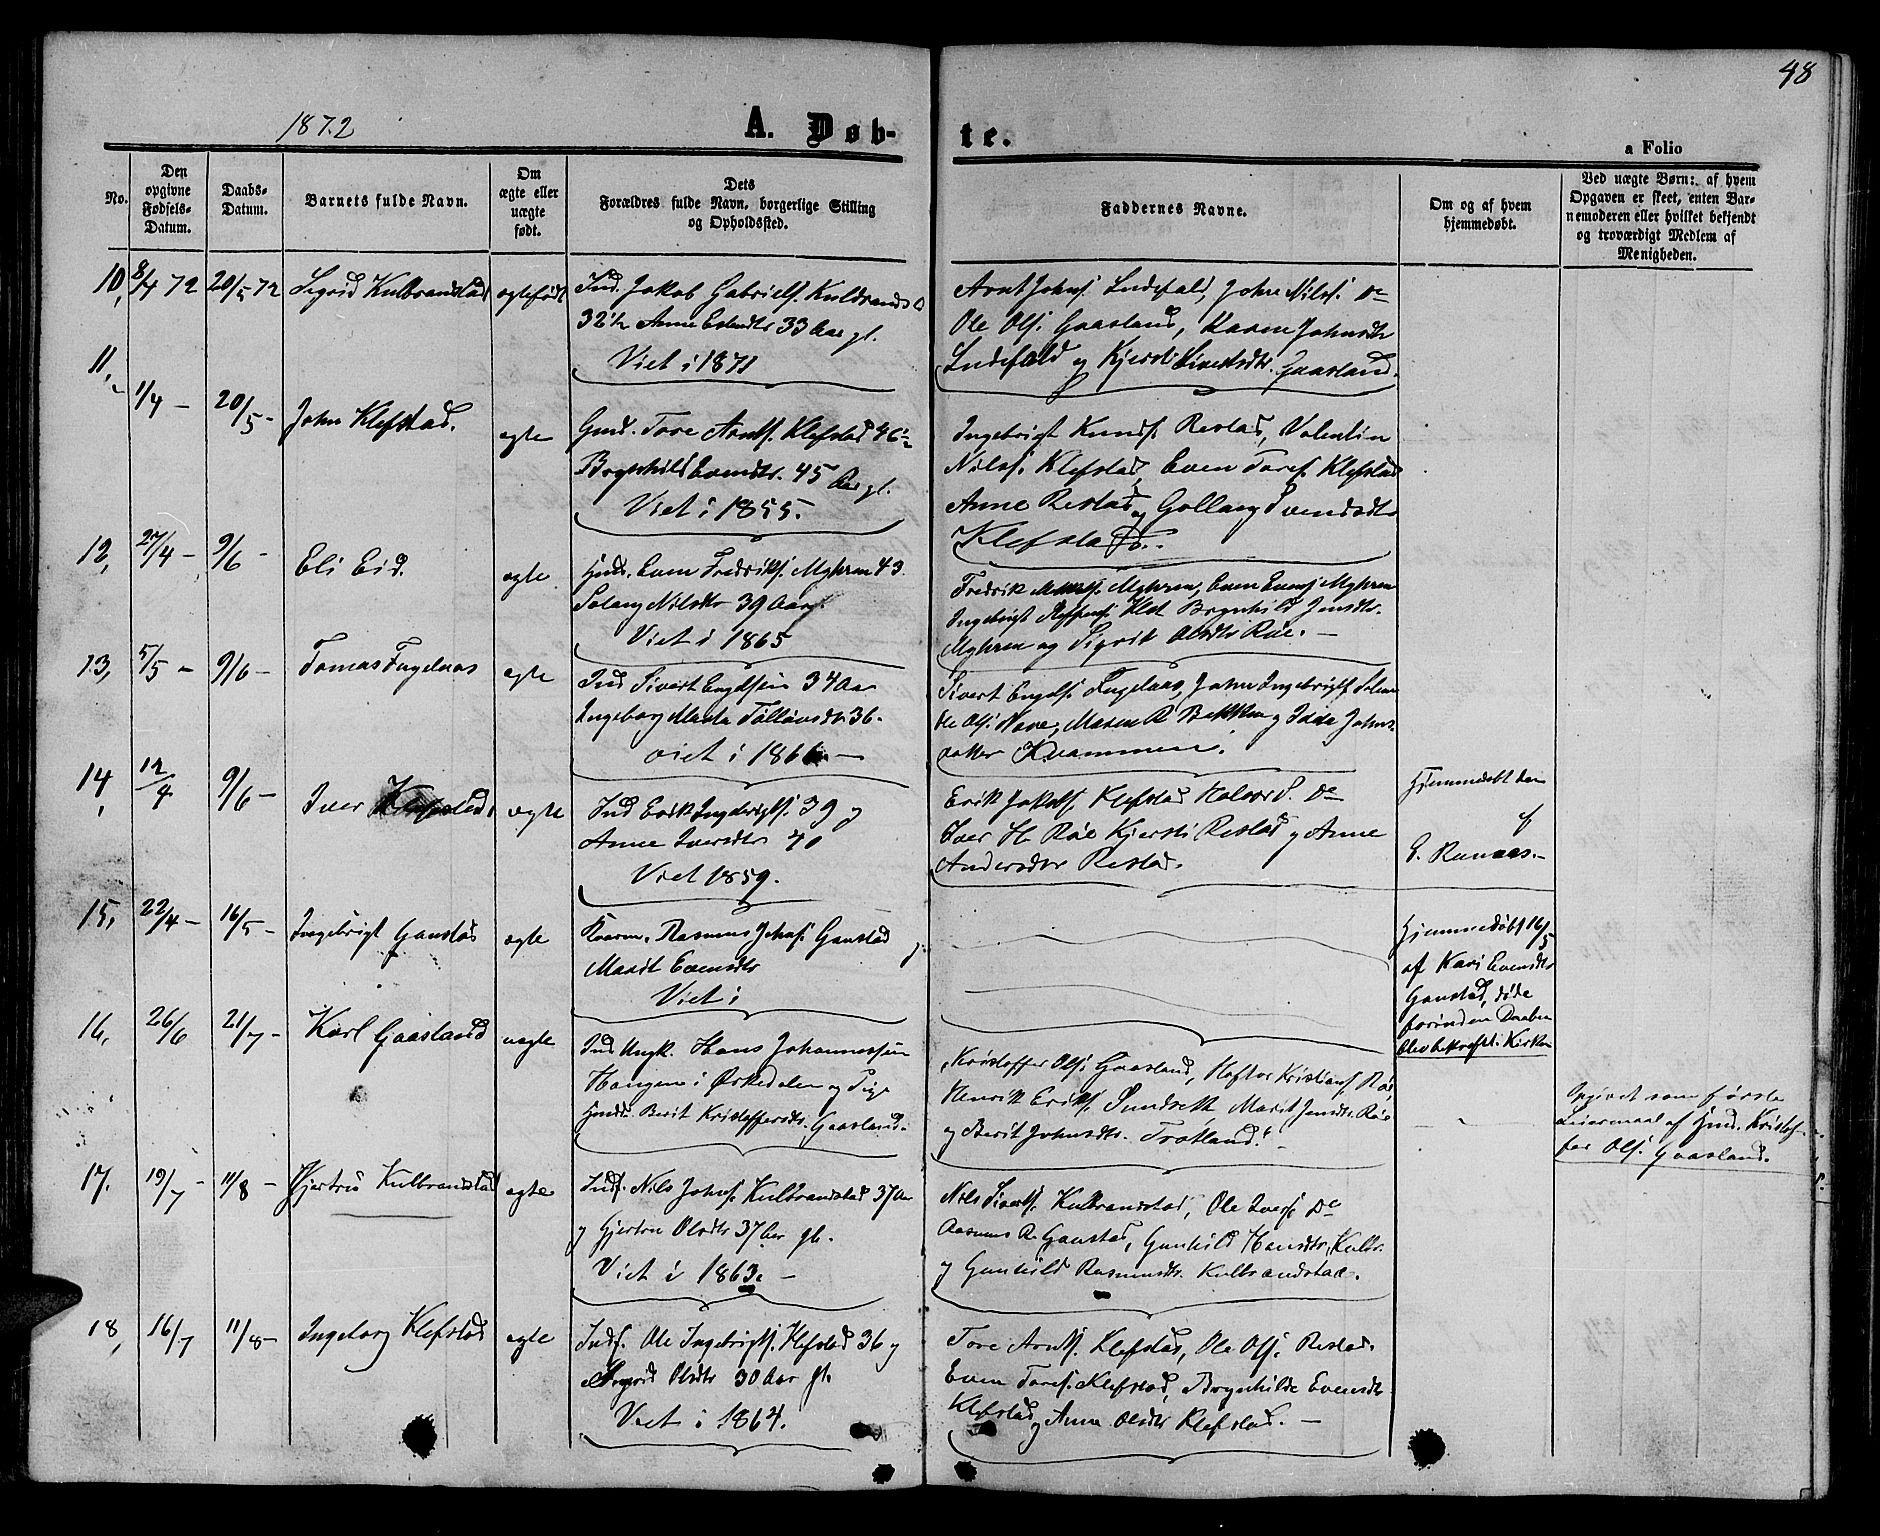 48
1872
A. Døb-
te.
a Folio
No.
Den opgivne Fødsels-Datum.
Daabs-Datum.
Barnets fulde Navn.
Om ægte eller uægte født.
Dets Forældres fulde Navn, borgerlige Stilling og Opholdssted.
Faddernes Navne.
Om og af hvem hjemmedøbt.
Ved uægte Børn: af hvem Opgaven er skeet, enten Barnemoderen eller hvilket bekjendt og troværdigt Medlem af Menigheden.
10, 8/4 72 20/5 72 Sigrid Kulbranstad egtefødt
Ind. Jakob Gabriels. Kulbrands
32 1/2 Anne 33 Aar gl.
Viet i 1871
Arnt Johns. Lndefald, John Nils. Do
Ole Ols. Gaasland, Karen Johnsdtr
Lndefald og Kjersti Sivertsdtr. Gaasland.
11, 1/4 - 20/5 - John Klefstad. egte
Gmd. Tore Arnts. Klefstad 46 1/2
Brynhild Evendtr. 45 Aar gl.
Viet i 1855.
Ingebrigt Knuds. Restad, Valentin
Nils. Klefstad, Even Tores. Klefstad
Anne Restad og Gollaug Svendsdtr
Klefstad.
12, 27/4 - 9/6 - Eli Eid. egte
Hmd. Even Fredriks. Myhren 43.
Solang Nilsdtr 39 Aar
Viet i 1865
Fredrik Myhren, Even Evens. Myhren
Ingebrigt Brynhild Jensdtr.
Myhren og Sigrid Olsdtr Røe. -
13, 5/5 - 9/6 - Tomas Fugelaas egte
Ind Sivert Engelsen 34 Aar
Ingeborg Marta Tollevsdtr 36.
viet i 1866 -
Sivert Engels. Fugelaas, John Ingebrigts.
Ole Ols. Have, Maren R. Bakken og Idda Johns-
datter Kvammen.
14, 12/4 9/6 - Iver Klefstad, egte
Ind Erik Ingebrigts. 39 og
Anne Iversdtr 40
Viet 1859.
Erik Jakobs. Klefstad Halvor S. Do
Iver H. Røe Kjersti Restad og Anne
Andersdtr Restad.
Hjemmedøbt den
af
E. Ranaes. -
15, 22/4 - 16/5 - Ingebrigt Ganstad egte
Rasmus Johns. Ganstad og
Marit Evensdtr
Viet i
Hjemmedøbt 16/5
af Kari Evensdtr
Ganstad, døde
forinden Daaben
blev bekræft. i Kirken
16, 26/6 21/7 - Karl Gaasland uegte
Ind Ungk. Hans Johannessen
Haugen i Ørkedalen og Pige
Hmds. Berit Kristoffersdtr. Gaasland.
Kristoffer Ols. Gaasland, Haftor Kristians. Røe
Henrik Eriks. Sundseth Marit Jensdtr. Røe
og Berit Johnsdtr. Trotland.
Opgivet som første
Leiermaal af Hmd. Kristof-
fer Ols. Gaasland.
17. 19/7 - 11/8 - Hjertrud Kulbranstad egte
Inds. Nils Johns. Kulbranstad 37 Aar
og Gjertru Olsdtr 37 Aar gl.
Viet i 1863. -
Nils Siverts. Kulbranstad, Ole Ivers. Do
Rasmus R. Ganstad, Gunhild Hansdtr. Kulbr.
og Gunhild Rasmusdtr. Kulbrandstad.
18, 16/7 11/8 - Ingeborg Klefstad egte
Inds. Ole Ingebrigts. Klefstad 36 og
Sigrid Olsdtr 30 Aar gl.
Viet i 1864.
Tore Arnts. Klefstad, Ole Ols. Restad.
Even Tores. Klefstad, Brynhilde Evensdtr
Klefstad og Anne Olsdtr Klefstad. -